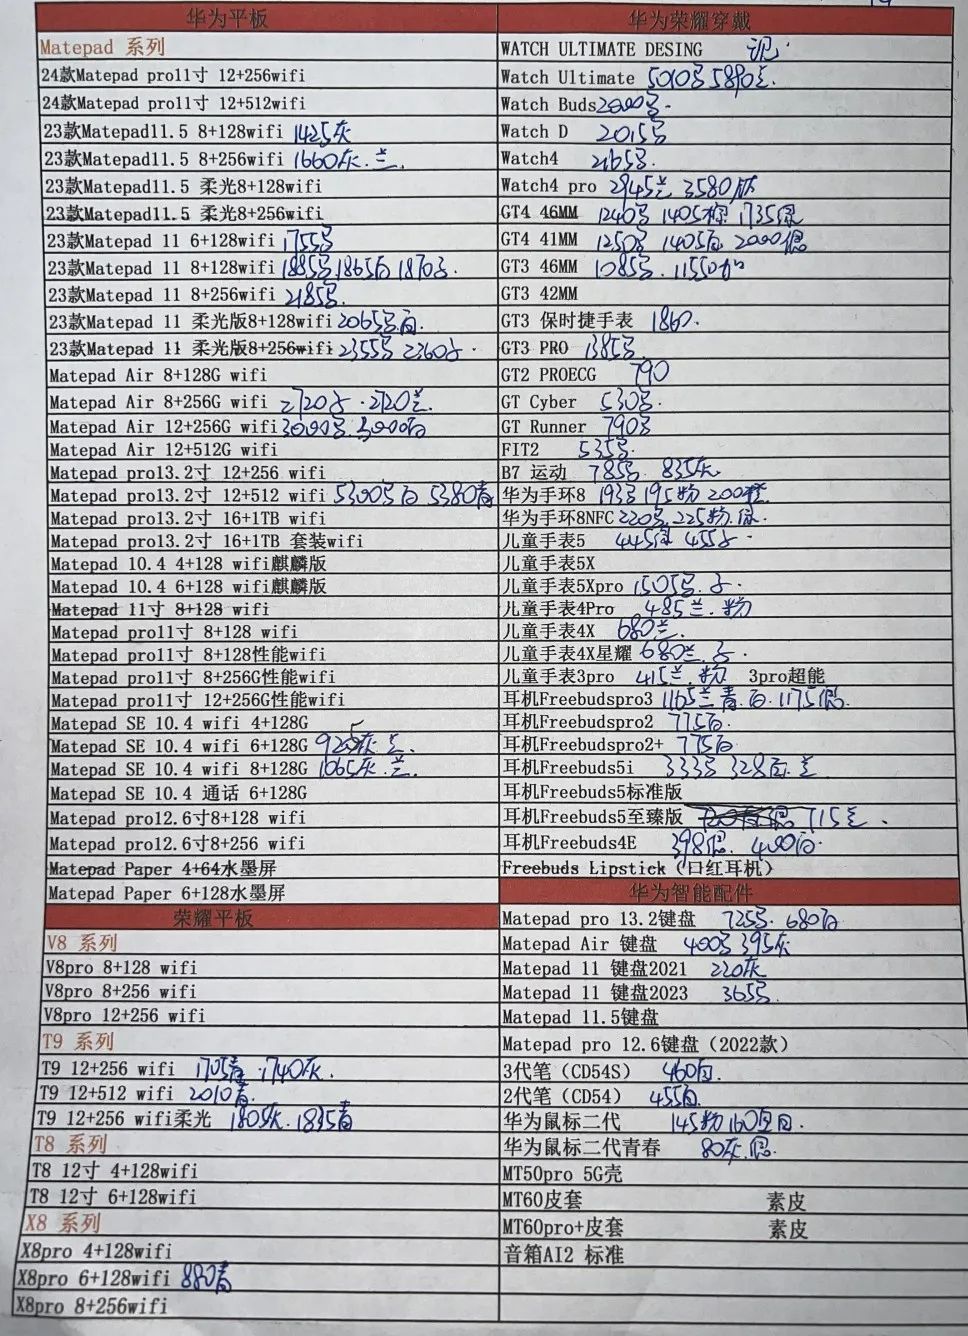 华为平板
Matepad 系列
24款Matepad pro11寸 12+256wifi
24款Matepad pro11寸 12+512wifi
23款Matepad11.5 8+128wifi 1425灰
23款Matepad11.5 8+256wifi 1660灰.兰.
23款Matepad11.5 柔光8+128wifi
23款Matepad11.5 柔光8+256wifi
23款Matepad 11 6+128wifi 1755
23款Matepad 11 8+128wifi 1885 1865白 1870
23款Matepad 11 8+256wifi 2185
23款Matepad 11 柔光版8+128wifi 2065
23款Matepad 11 柔光版8+256wifi 2355 2360
Matepad Air 8+128G wifi
Matepad Air 8+256G wifi 2720 2720兰.
Matepad Air 12+256G wifi 3000 3000白
Matepad Air 12+512G wifi
Matepad pro13.2寸 12+256 wifi
Matepad pro13.2寸 12+512 wifi 5300 白 5380青
Matepad pro13.2寸 16+1TB wifi
Matepad pro13.2寸 16+1TB 套装wifi
Matepad 10.4 4+128 wifi麒麟版
Matepad 10.4 6+128 wifi麒麟版
Matepad 11寸 8+128 wifi
Matepad pro11寸 8+128 wifi
Matepad pro11寸 8+128性能wifi
Matepad pro11寸 8+256G性能wifi
Matepad pro11寸 12+256G性能wifi
Matepad SE 10.4 wifi 4+128G
Matepad SE 10.4 wifi 6+128G 灰 兰.
Matepad SE 10.4 wifi 8+128G 1065灰.兰
Matepad SE 10.4 通话 6+128G
Matepad pro12.6寸8+128 wifi
Matepad pro12.6寸8+256 wifi
Matepad Paper 4+64水墨屏
Matepad Paper 6+128水墨屏
荣耀平板
V8 系列
V8pro 8+128 wifi
V8pro 8+256 wifi
V8pro 12+256 wifi
T9 系列
T9 12+256 wifi 1705青 1740灰.
T9 12+512 wifi 2010青
T9 12+256 wifi柔光 1805灰. 1835青
T8 系列
T8 12寸 4+128wifi
T8 12寸 6+128wifi
X8 系列
X8pro 4+128wifi
X8pro 6+128wifi 880青
X8pro 8+256wifi
华为荣耀穿戴
WATCH ULTIMATE DESING
Watch Ultimate 5010 5890兰.
Watch Buds 2000
Watch D 2015
Watch4 2165
Watch4 pro 2945兰 3580钛
GT4 46MM 1240 1405棕 1735绿
GT4 41MM 1250 1405白 2000银
GT3 46MM 1085 1155
GT3 42MM
GT3 保时捷手表 1860.
GT3 PRO 1385
GT2 PROECG 790
GT Cyber 530
GT Runner 790
FIT2 535
B7 运动 785 835灰
华为手环8 193 195粉 200橙
华为手环8NFC 220 225粉.绿.
儿童手表5 445绿 455
儿童手表5X
儿童手表5Xpro 1505
儿童手表4Pro 485兰.粉
儿童手表4X 680兰.
儿童手表4X星耀 680兰.
儿童手表3pro 415兰.粉 3pro超能
耳机Freebudspro3 1165兰 青.白.1175银.
耳机Freebudspro2 775白.
耳机Freebudspro2+ 775白
耳机Freebuds5i 333 328白.兰
耳机Freebuds5标准版
耳机Freebuds5至臻版 715兰.
耳机Freebuds4E 398银. 400白.
Freebuds Lipstick（口红耳机）
华为智能配件
Matepad pro 13.2键盘 725 680白
Matepad Air 键盘 400 395灰
Matepad 11 键盘2021 220灰
Matepad 11 键盘2023 365
Matepad 11.5键盘
Matepad pro 12.6键盘（2022款）
3代笔（CD54S） 460白.
2代笔（CD54） 455白.
华为鼠标二代 145粉 160 白.
华为鼠标二代青春 80灰.银.
MT50pro 5G壳
MT60皮套 素皮
MT60pro+皮套 素皮
音箱AI2 标准